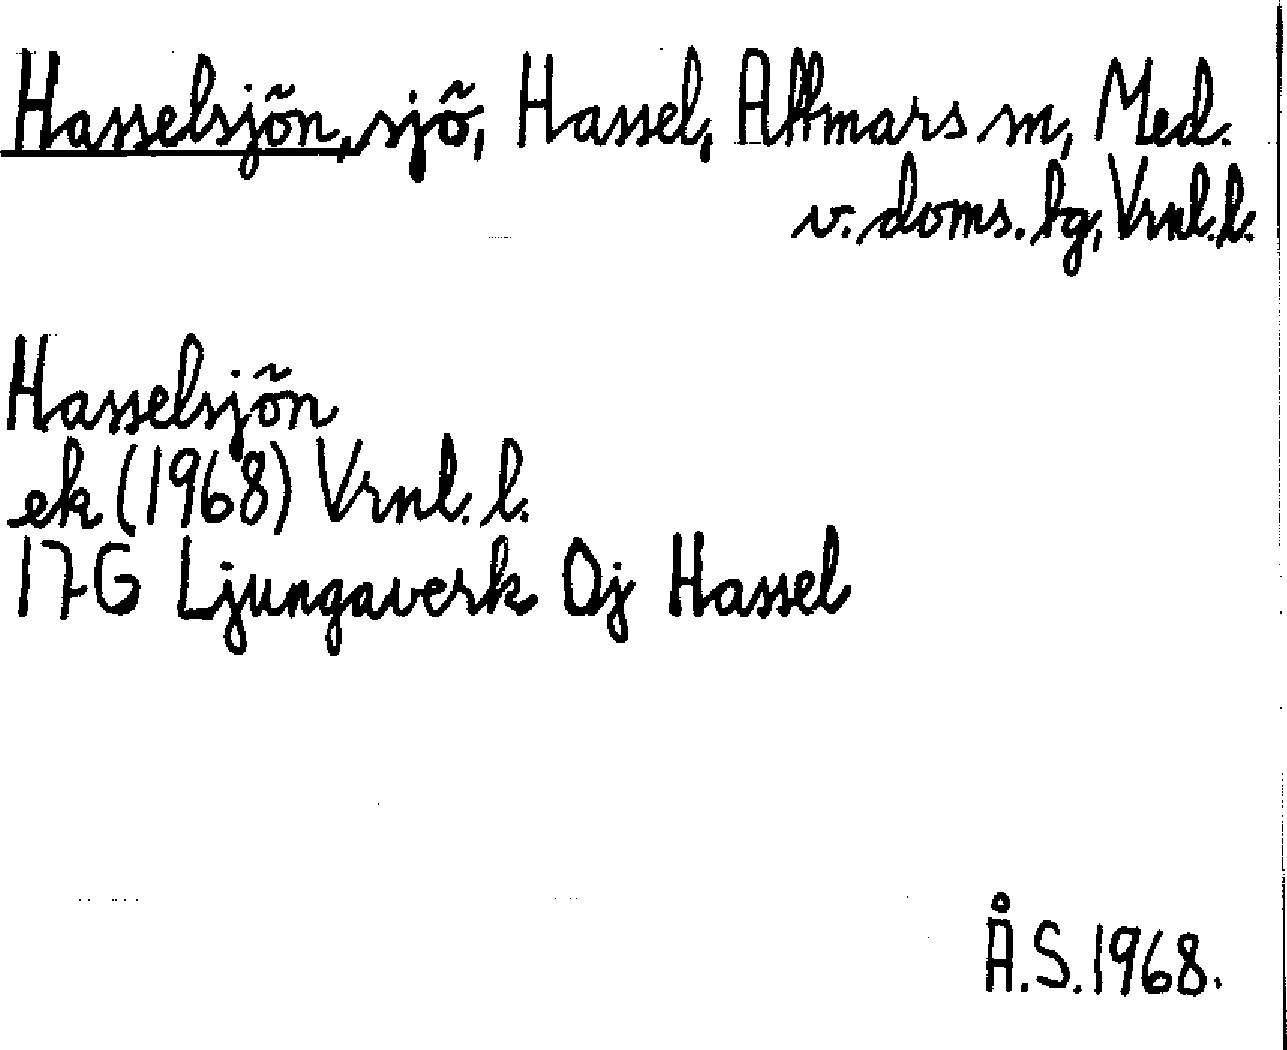 Hasselsjön, sjö, Hassel, Attmars sn, Med.
v. doms. lg, Vrnl. l.
Hasselsjön
ek (1968) Vrnl. l.
17G Ljungaverk Oj Hassel
Å.S. 1968.